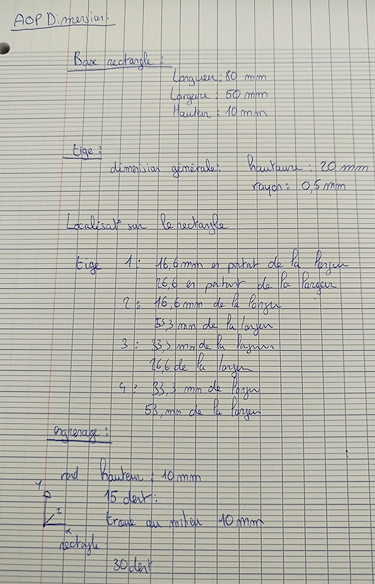 AOP Dimension:
Bax rectangle:
Longueur: 80 mm
Largeur: 50 mm
Hauteur: 10 mm
tige:
dimension générale: hauteure: 20 mm
rayon: 0,5 mm
Localisat° sur le rectangle
tige 1: 16,6 mm en partat de la
26,6 en partant de la largeur
2: 16,6 mm de la
53,3 mm de la
3: 33,3 mm de la
26,6 de la
4: 33,3 mm de
53, mm de la
engrenage:
rond hauteur: 10 mm
15 dent:
troue au milieu 10 mm
Y
Z
X
rectangle
30 dent